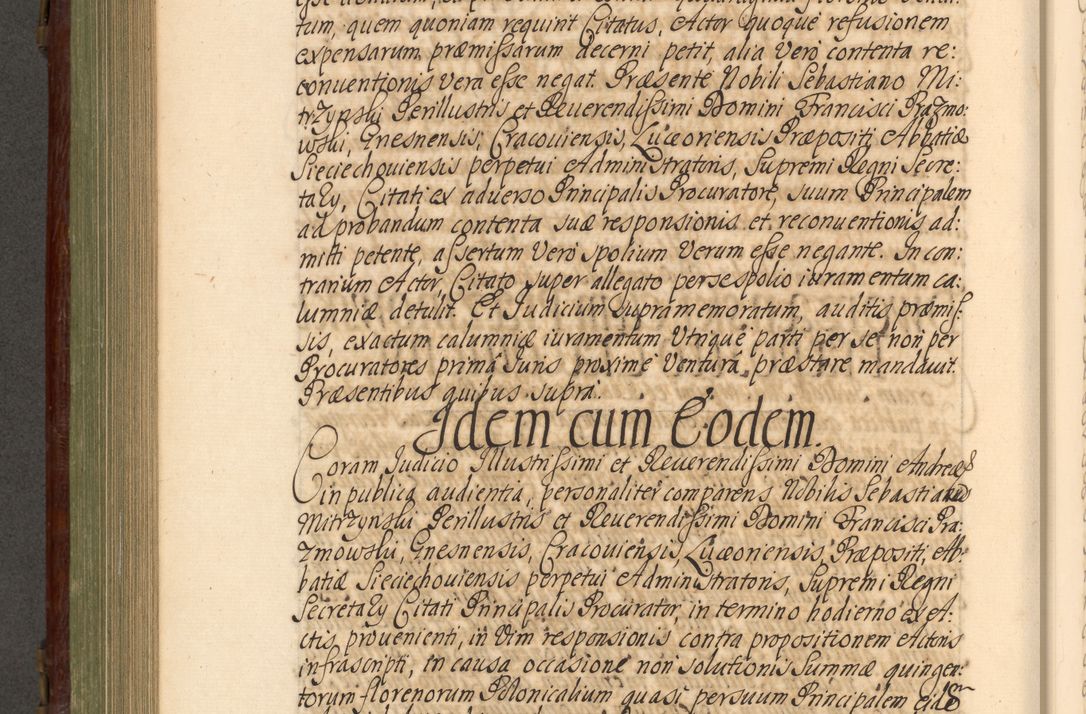 tum, quem quoniam requirit Citatus, Actor quoque refusionem
expensarum præmissarum decerni petit, alia Vero contenta re:
conventionis vera esse negat. Præsente Nobili Sebastiano Mi:
trzynski Perillustris et Reuerendissimi Domini Francisci Prazmo:
wski, Gnesnensis, Cracouiensis, Luceoriensis Præpositi Abbatiæ
Sieciechouiensis perpetui Administratoris, Supremi Regni Secre:
tarÿ, Citati ex aduerso Principalis Procuratore, suum Principalem
ad probandum contenta suæ responsionis et reconuentionis ad:
mitti petente, assertum Vero spolium Verum esse negante. In con:
trarium Actor, Citato super allegato per se spolio iuramentum ca:
lumniæ detulit. Et Judicium supramemoratum, auditis præmis:
sis, exactum calumniæ iuramentum Utrique parti per se non per
Procuratores prima Juris proxime Ventura præstare mandauit.
Præsentibus quibus supra.
Idem cum Eodem.
Coram Judicio Illustrissimi et Reuerendissimi Domini Andreæ
in publica audientia, personaliter comparens Nobilis Sebastianus
Mitrzynski Perillustris et Reuerendissimi Domini Francisci Pra:
zmowski, Gnesnensis, Cracouiensis, Luceoriensis, Præpositi, Ab:
batiæ Sieciechouiensis perpetui Administratoris, Supremi Regni
Secretarÿ Citati Principalis Procurator, in termino hodierno ex A:
ctis prouenienti, in Vim responsionis contra propositionem Actoris
infrascripti, in causa occasione non solutionis Summæ quingen:
torum florenorum Polonicalium quasi per suum Principalem eidem